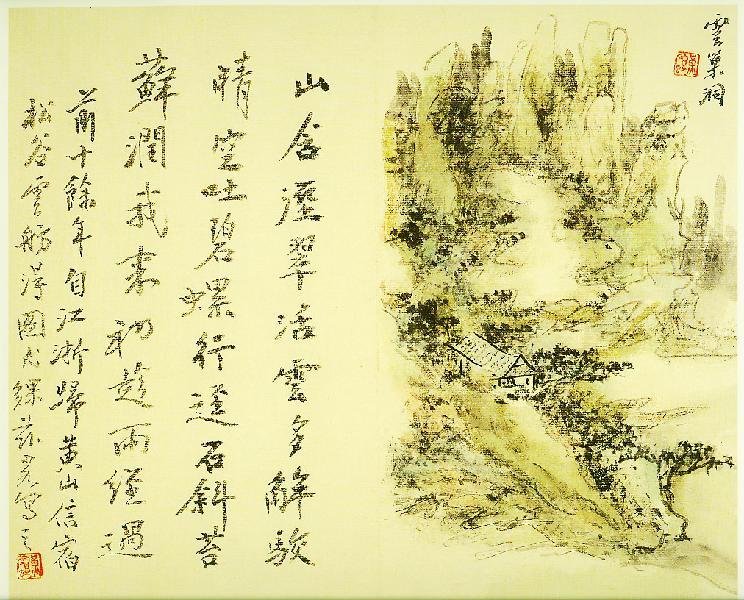 雲巢洞
山含溼翠活雲多解駮
晴空吐碧螺行遶石斜苔
蘚潤我來初趁雨經過
前十餘年自江浙歸黃山信宿
松谷雲舫得圖寫之